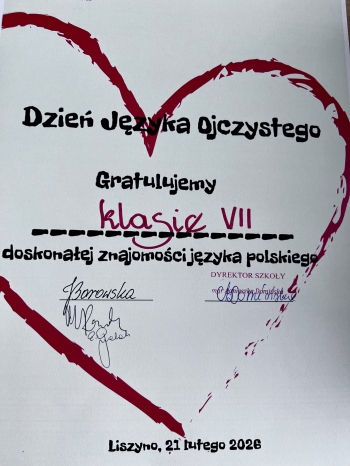 Dzień Języka Ojczystego
Gratulujemy
klasie VII
doskonałej znajomości języka polskiego
DYREKTOR SZKOŁY
Borowska
mgr
Liszyno, 21 lutego 2026